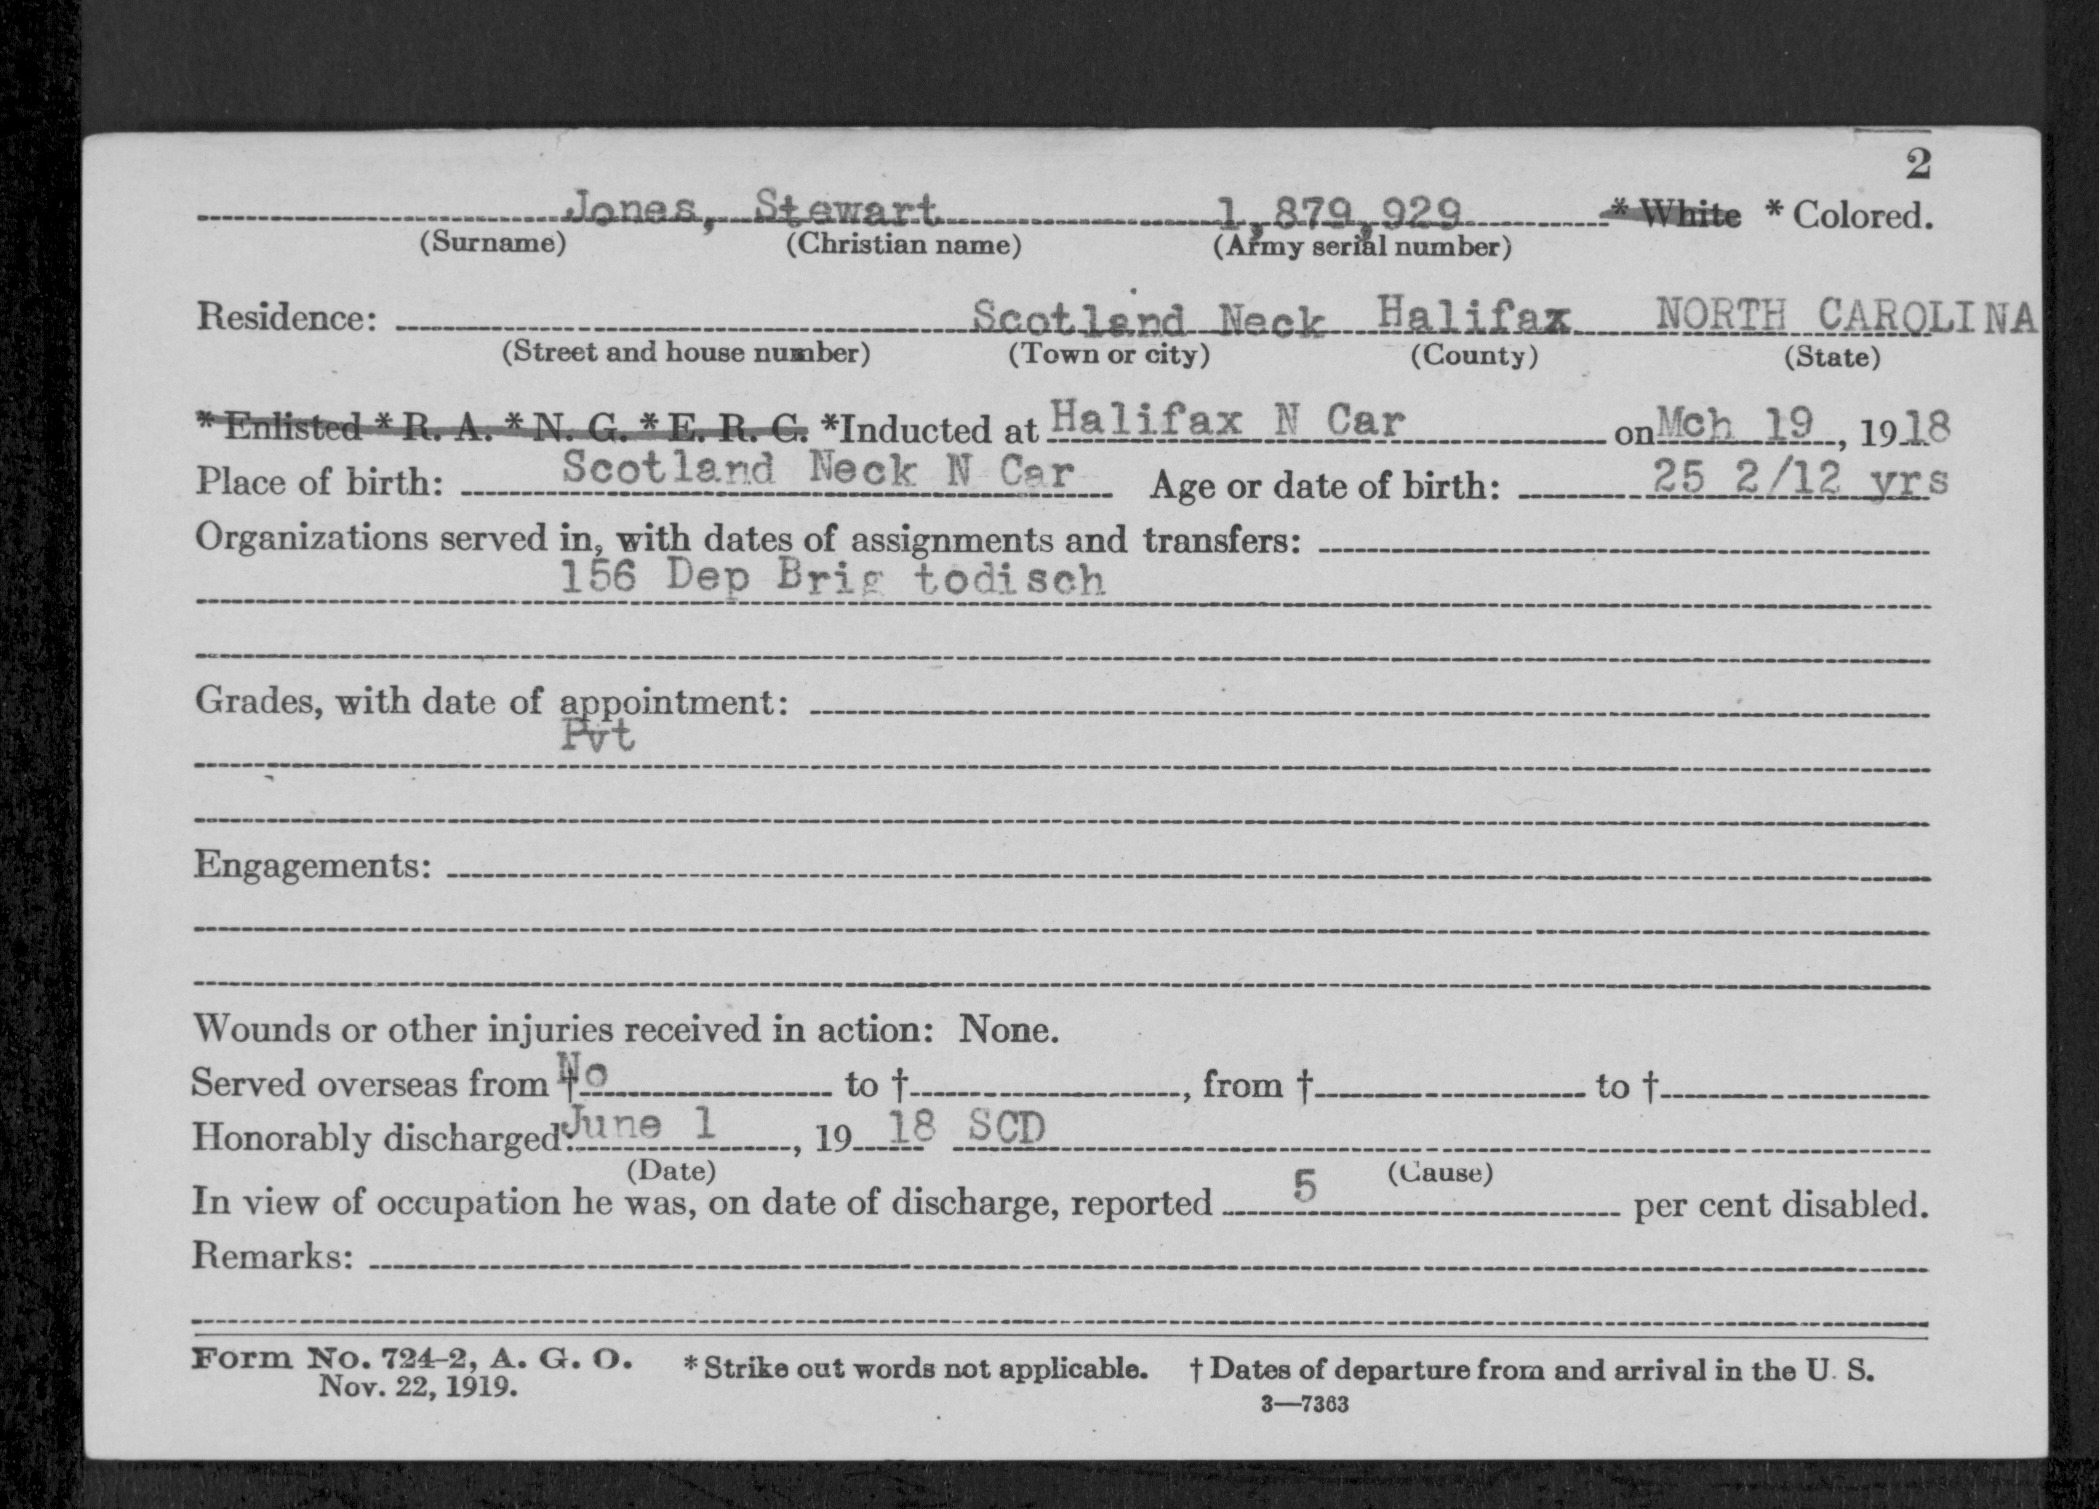 2
Jones, Stewart 1,879,929 * White * Colored.
(Surname) (Christian name) (Army serial number)
Residence: Scotland Neck Halifax NORTH CAROLINA
(Street and house number) (Town or city) (County) (State)
* Enlisted * R. A. * N. G. * E. R. C. *Inducted at Halifax N Car on Mch 19, 1918
Place of birth: Scotland Neck N Car Age or date of birth: 25 2/12 yrs
Organizations served in, with dates of assignments and transfers:
156 Dep Brig todisch
Grades, with date of appointment:
Pvt
Engagements:
Wounds or other injuries received in action: None.
Served overseas from † No to †, from † to †
Honorably discharged: June 1, 19 18 SCD
(Date) (Cause)
In view of occupation he was, on date of discharge, reported 5 per cent disabled.
Remarks:
Form No. 724-2, A. G. O. * Strike out words not applicable. † Dates of departure from and arrival in the U. S.
Nov. 22, 1919. 3—7363